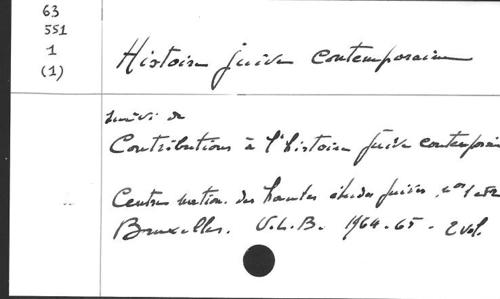 63
551
1
(1)
Histoire juive contemporaine
suivi de
Contributions à l'histoire juive contemporai
Centre nation. des hautes études juives, nos 1 et 2
Bruxelles. U.L.B. 1964-65 - 2 vol.